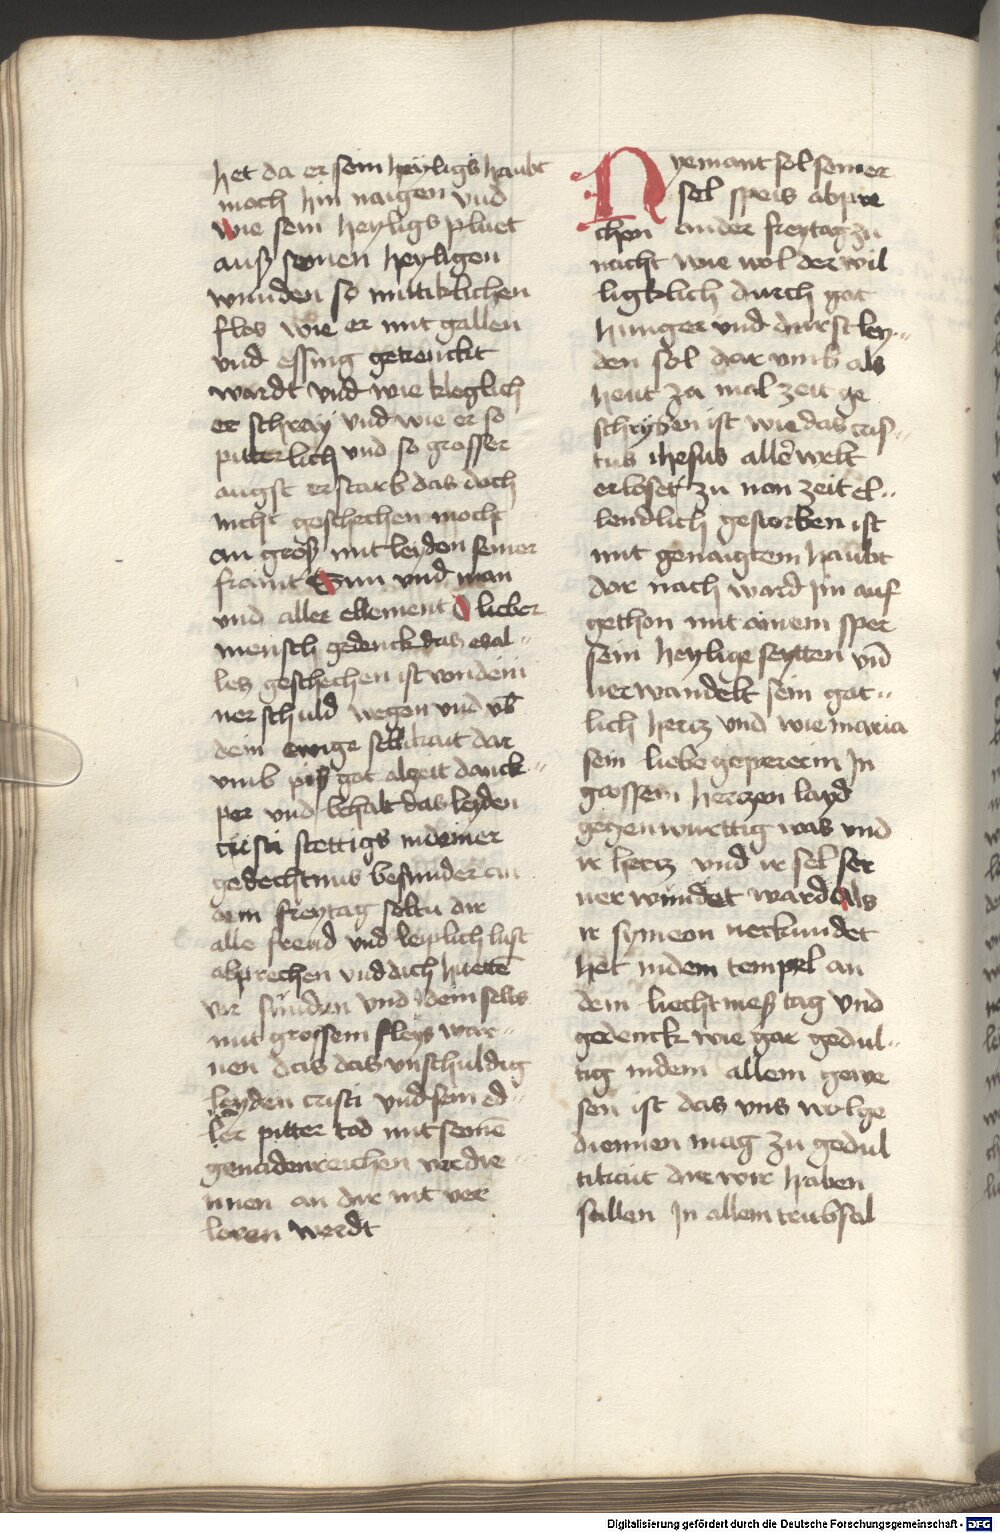 het da er sein heyligs haubt
moch hin naigen vnd
wie sein heyligs pluet
auß seinen heyligen
wunden so mittiklichen
flos wie er mit gallen
vnd essing getrenckt
wardt vnd wie kleglich
er schray vnd wie er so
pitterlich vnd so grosser
angst erstarb das doch
nicht geschechen mocht
an groß mitleyden seiner
fraint Sun vnd man
vnd aller ellement O lieber
mensch gedenck das es al-
les geschechen ist von dein
ner schuld wegen vnd vb
dein ewige sellikait dar
vmb piß got alzeit danck-
per vnd behalt das leyden
cristi stettigs in deiner
gedechtnus besunder an
dem freytag soltu dir
alle freud vnd leiplich lust
abprechen vnd dich huettē
vor sunden vnd dein selbs
mit grossem fleys war-
nen das das vnschuldig
leyden cristi vnd sein ed-
ler pitter tod mit seinē
genadenreichen verdie-
nnen an dir nit ver
loren werdt
Nyemant sol seiner
sel speis abpre
chen an der freytag zu
nacht wie wol der wil
ligklich durch got
hunger vnd durst ley-
den sol dar vmb als
heut za mal zeit ge
schryben ist wie das cris-
tus ihesus aller welt
erloset zu non zeit el-
lendlich gestorben ist
mit genaigtem haubt
dar nach ward im auf
gethon mit ainem sper
sein heylige seytten vn̄
uerwandelt sein got-
lich hertz vnd wie maria
sein liebe gepererin in
grossem hertzen layd
gegenwurttig was vnd
ir hertz vnd ir sel ser
uerwundet ward Als
ir symeon uerkundet
het in dem tempel an
dem liechtmeß tag vnd
gedenck wie gar gedul-
tig in dem allem gewe
sen ist das vns wol ge
diennen mag zu gedul
tikait die wir haben
sallen in allem trubsal
Digitalisierung gefördert durch die Deutsche Forschungsgemeinschaft - DFG